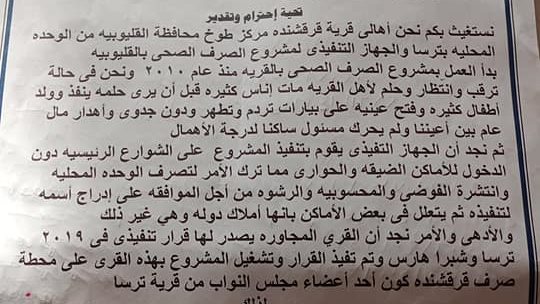 تحية إحترام وتقدير
نستغيث بكم نحن أهالى قرية قرقشنده مركز طوخ محافظة القليوبيه من الوحده
المحليه بترسا والجهاز التنفيذى لمشروع الصرف الصحى بالقليوبيه
بدأ العمل بمشروع الصرف الصحى بالقريه منذ عام ٢٠١٠ ونحن فى حالة
ترقب وانتظار وحلم لأهل القريه مات إناس كثيره قبل أن يرى حلمه ينفذ وولد
أطفال كثيره وفتح عينيه على بيارات تردم وتطهر ودون جدوى وأهدار مال
عام بين أعيننا ولم يحرك مسئول ساكنا لدرجة الأهمال
ثم نجد أن الجهاز التفيذى يقوم بتنفيذ المشروع على الشوارع الرئيسيه دون
الدخول للأماكن الضيقه والحوارى مما ترك الأمر لتصرف الوحده المحليه
وانتشرة الفوضي والمحسوبيه والرشوه من أجل الموافقه على إدراج أسمه
لتنفيذه ثم يتعلل فى بعض الأماكن بانها أملاك دوله وهي غير ذلك
والأدهى والأمر نجد أن القري المجاوره يصدر لها قرار تنفيذى فى ٢٠١٩
ترسا وشبرا هارس وتم تفيذ القرار وتشغيل المشروع بهذه القرى على محطة
صرف قرقشنده كون أحد أعضاء مجلس النواب من قرية ترسا